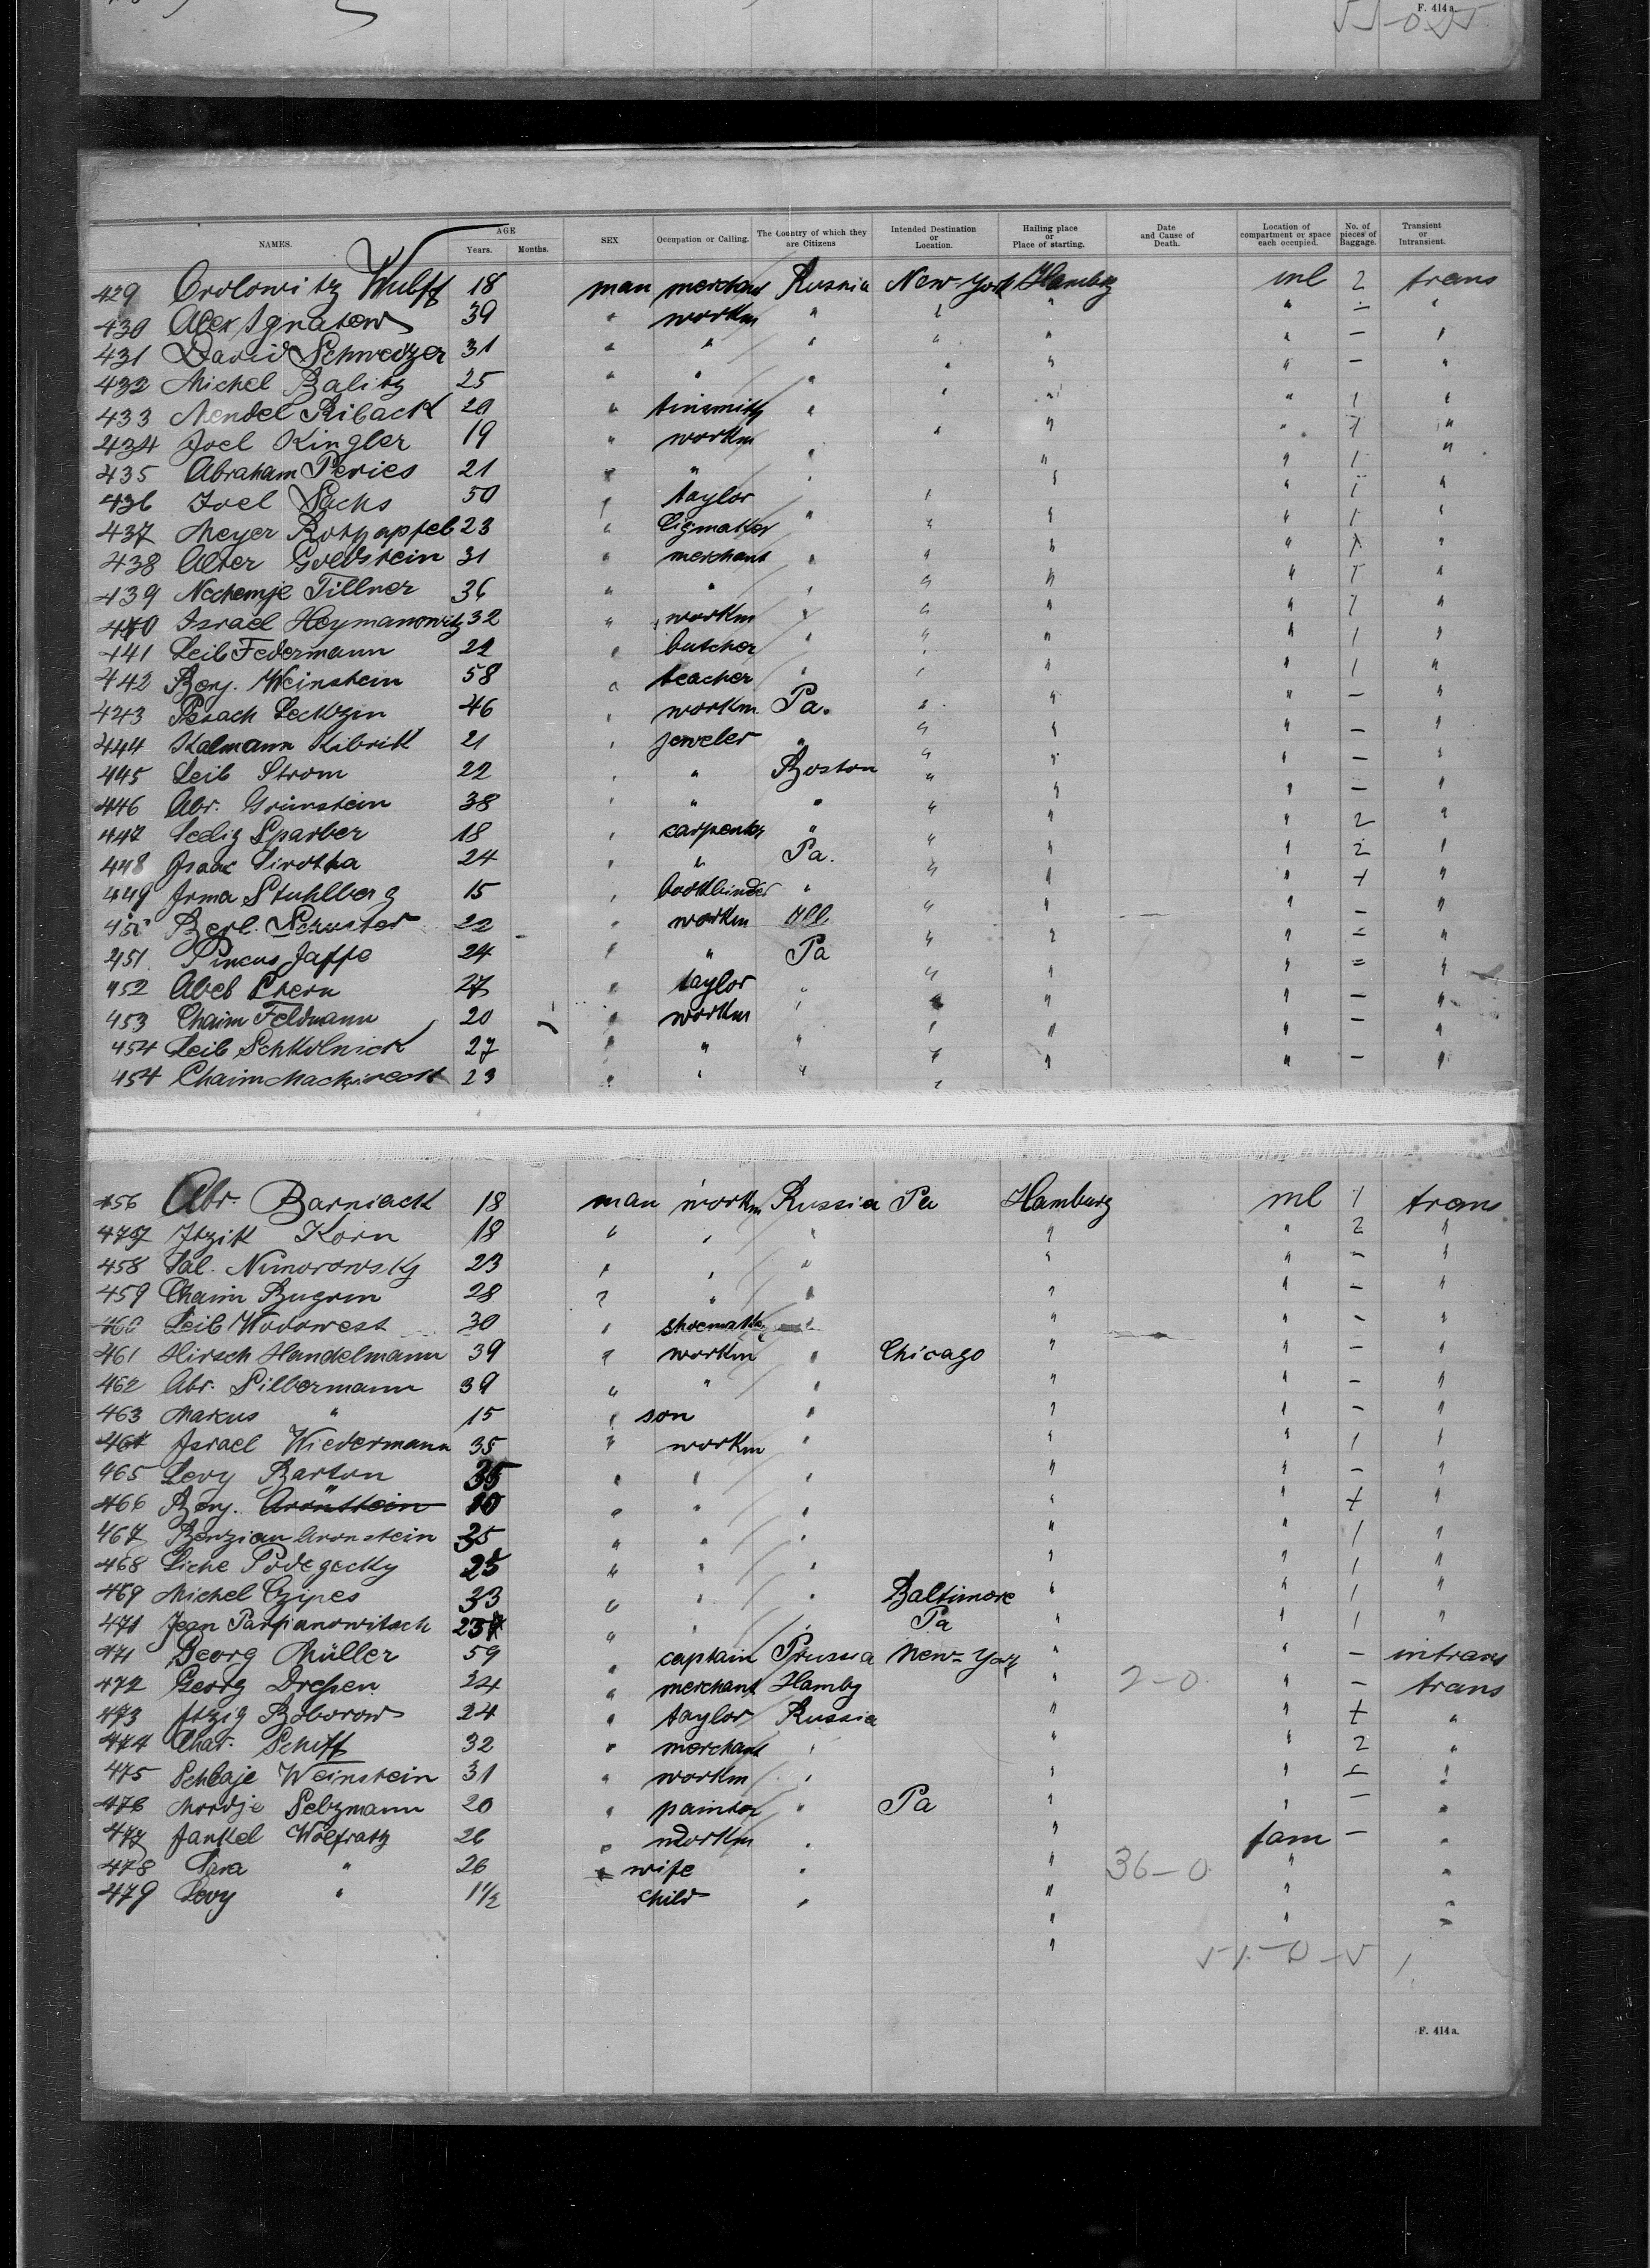 F. 414a
NAMES. AGE Years. Months. SEX Occupation or Calling. The Country of which they are Citizens Intended Destination or Location. Hailing place or Place of starting. Date and Cause of Death. Location of compartment or space each occupied. No. of pieces of Baggage. Transient or Intransient.
429 Orolowitz Wulff 18 man merchant Russia New-York Hambg ml 2 trans
430 Alex Ignatow 39 " workm " " " " - "
431 David Schweizer 31 " " " " " " - "
432 Michel Balitz 25 " " " " " " - "
433 Mendel Riback 20 " tinsmith " " " " 1 "
434 Joel Kingler 19 " workm " " " " 1 "
435 Abraham Peries 21 " " " " " 1 "
436 Joel Sachs 50 " taylor " " " 1 "
437 Meyer Rothapfel 23 " Cigmaker " " " " 1 "
438 Alter Goldstein 31 " merchant " " " " 1 "
439 Nechemje Tillner 36 " " " " " " 1 "
440 Israel Heymanowitz 32 " workm " " " " 1 "
441 Leib Federmann 22 " butcher " " " " 1 "
442 Benj. Weinstein 58 " teacher " " " " 1 "
443 Pesach Leckzin 46 " workm Pa. " " " - "
444 Kalmann Kibrik 21 " jeweler " " " " - "
445 Leib Strom 22 " " Boston " " " - "
446 Abr. Grünstein 38 " " " " " " - "
447 Selig Sparber 18 " carpenter " " " " 2 "
448 Isaac Sirotka 24 " " Pa. " " " 2 "
449 Irma Stuhlberg 15 " bookbinder " " " + "
Berl. Schuster 22 " workm Ill " " " - "
451 Pincus Jaffe 24 " " Pa " " " = "
452 Abel Stern 27 " taylor " " " " = "
453 Chaim Feldmann 20 " workm " " " " - "
454 Leib Schkolnick 27 " " " " " " - "
454 Chaim 23 " " " " " " - "
456 Abr. Barniack 18 man workm Russia Pa Hamburg ml 1 trans
457 Itzik Korn 18 " " " " " 2 "
458 Sal. Nimorowsky 23 " " " " " - "
459 Chaim Bugrin 28 " " " " " - "
460 Leib Wodowest 30 " shoemaker " " " - "
461 Hirsch Handelmann 39 " workm " Chicago " " - "
462 Abr. Silbermann 39 " " " " " - "
463 Markus " 15 " son " " " - "
464 Israel Wiedermann 35 " workm " " " 1 "
465 Levy Barton 35 " " " " " - "
466 Benj. Aronstein 10 " " " " " + "
467 Benzian Aronstein 25 " " " " " 1 "
468 Liche Podegecky 25 " " " " " 1 "
469 Michel Czipes 33 " " " Baltimore " " 1 "
471 Jean Parpianowitsch 23 " " " Pa " " 1 "
471 Georg Müller 59 " captain Prussia New-York " " - intrans
472 Georg Dressen 24 " merchant Hambg " 2-0 " - trans
473 Itzig Boborow 24 " taylor Russia " " + "
474 Char. Schiff 32 " merchant " " " 2 "
475 Schlaje Weinstein 31 " workm " " " + "
476 Mordje Selzmann 20 " painter " Pa " " - "
477 Jankel Wolfratz 26 " workm " " fam - "
478 Sara " 26 " wife " " 36-0 " "
479 Levy " 1 1/2 child " " " "
F. 414a.